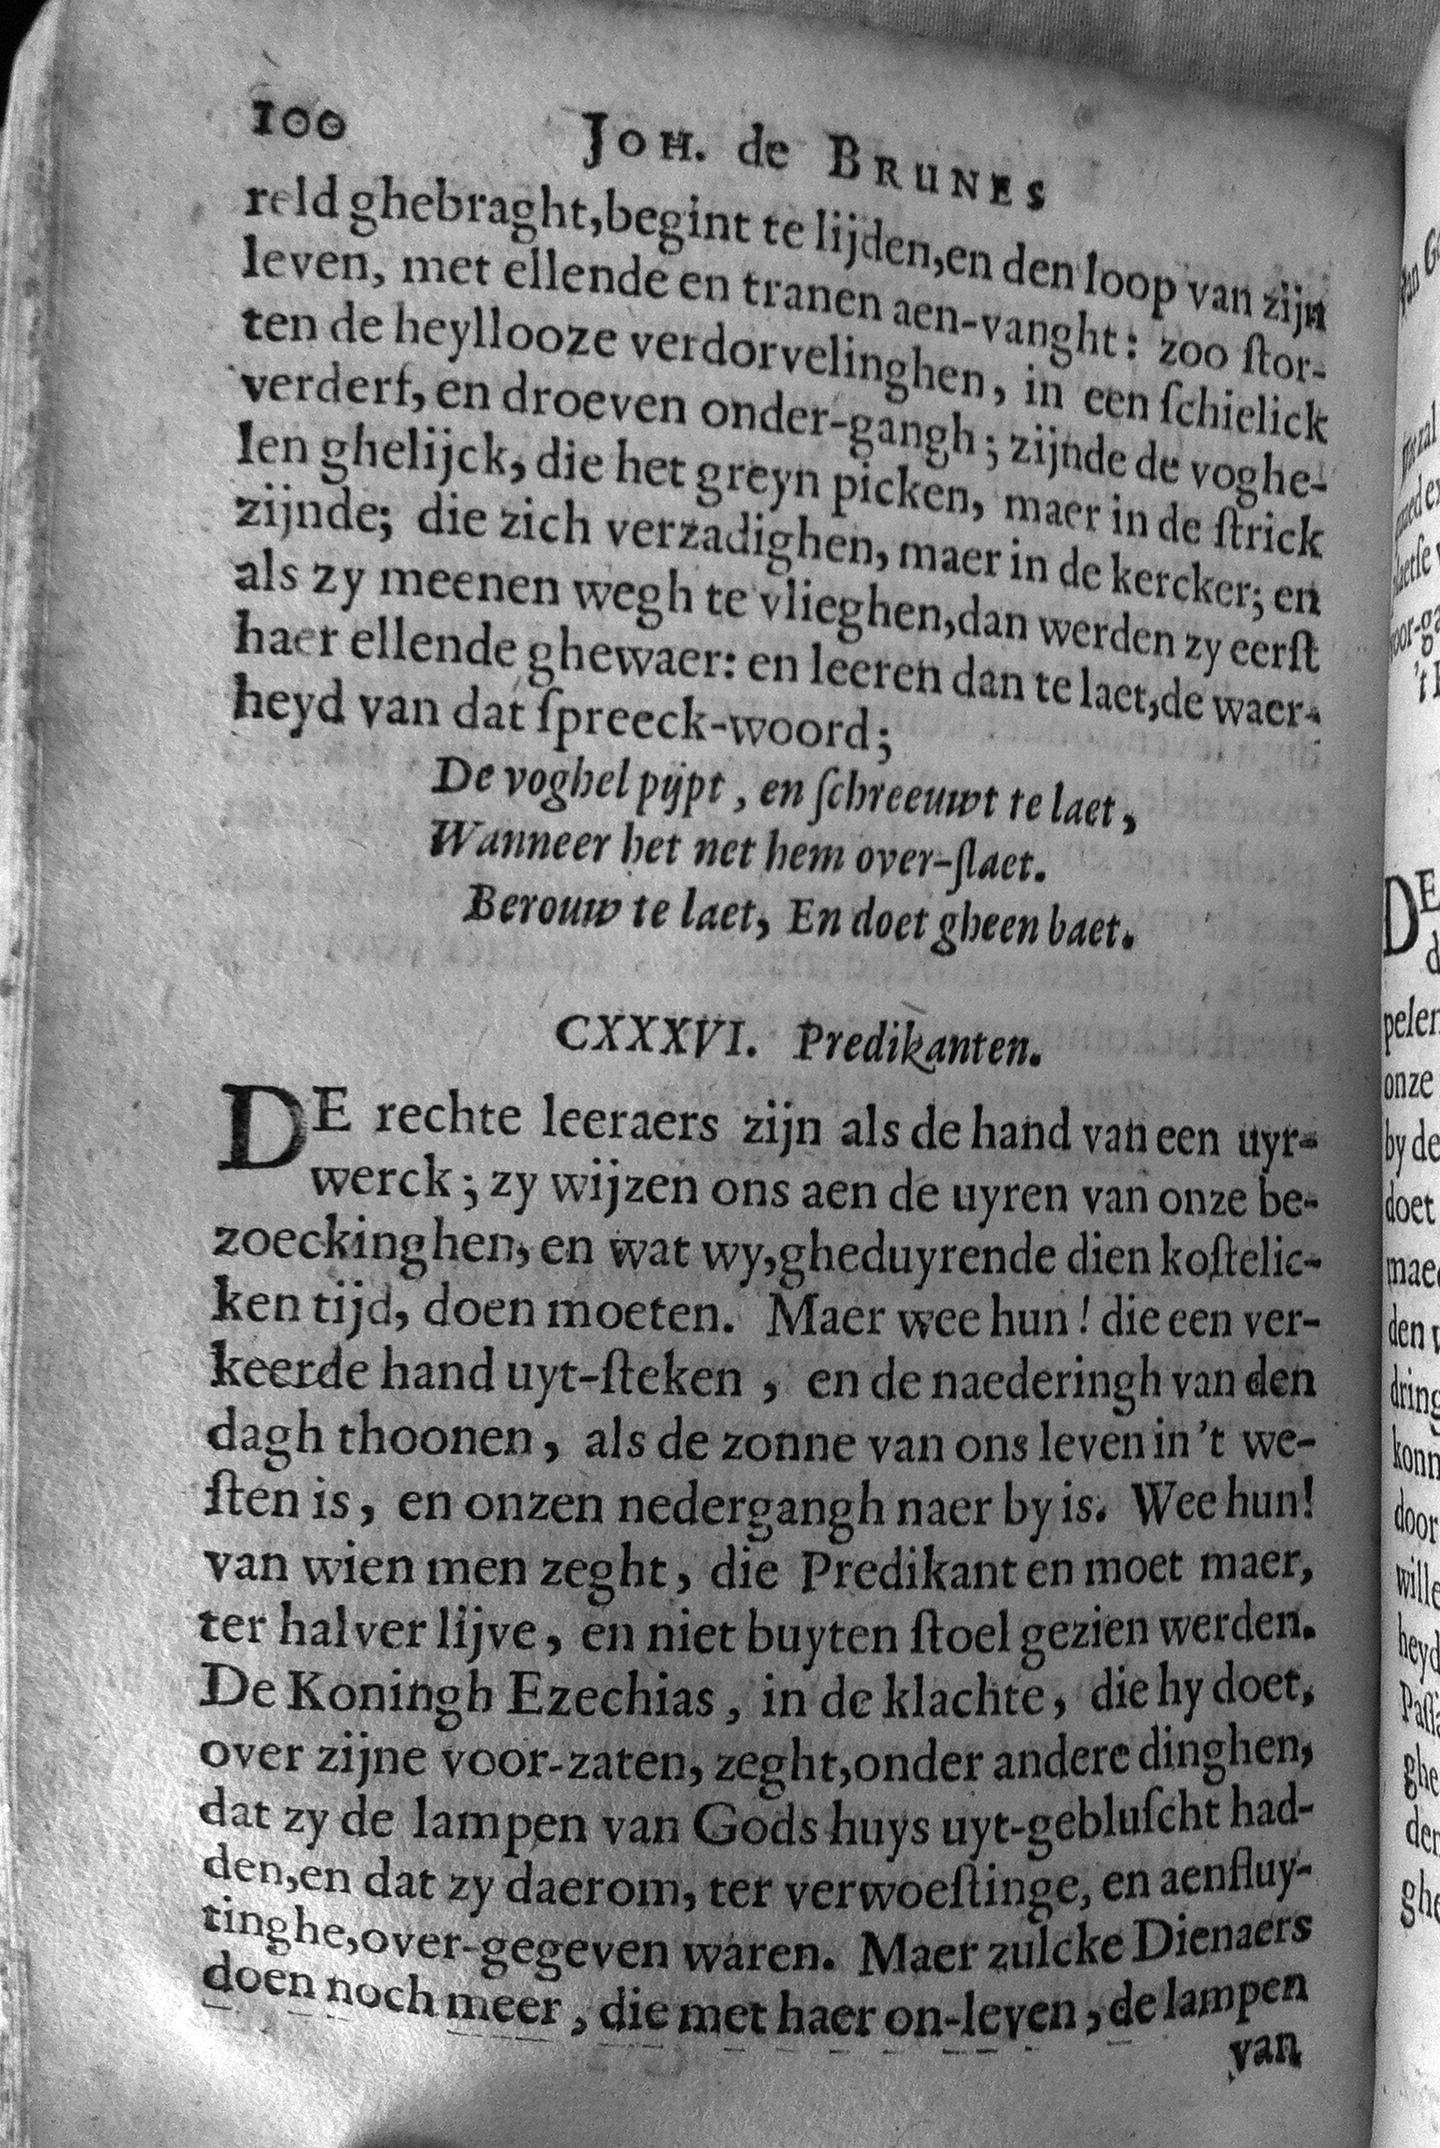 100 JOH. de BRUNES
reld ghebraght,begint te lijden,en den loop van zijn
leven, met ellende en tranen aen-vanght: zoo ſtor-
ten de heyllooze verdorvelinghen, in een ſchielick
verderf, en droeven onder-gangh; zijnde de voghe-
len ghelijck, die het greyn picken, maer in de ſtrick
zijnde; die zich verzadighen, maer in de kercker; en
als zy meenen wegh te vlieghen,dan werden zy eerſt
haer ellende ghewaer: en leeren dan te laet,de waer-
heyd van dat ſpreeck-woord;
De voghel pijpt, en ſchreeuwt te laet,
Wanneer het net hem over-ſlaet.
Berouw te laet, En doet gheen baet.
CXXXVI. Predikanten.
DE rechte leeraers zijn als de hand van een uyr-
werck; zy wijzen ons aen de uyren van onze be-
zoeckinghen, en wat wy,gheduyrende dien koſtelic-
ken tijd, doen moeten. Maer wee hun! die een ver-
keerde hand uyt-ſteken, en de naederingh van den
dagh thoonen, als de zonne van ons leven in 't we-
ſten is, en onzen nedergangh naer by is. Wee hun!
van wien men zeght, die Predikant en moet maer,
ter halver lijve, en niet buyten ſtoel gezien werden.
De Koningh Ezechias, in de klachte, die hy doet,
over zijne voor-zaten, zeght,onder andere dinghen,
dat zy de lampen van Gods huys uyt-gebluſcht had-
den,en dat zy daerom, ter verwoeſtinge, en aenfluy-
tinghe,over-gegeven waren. Maer zulcke Dienaers
doen noch meer, die met haer on-leven, de lampen
van
DE
pelen
onze
by de
doet
den
konn
door
wille
heyd